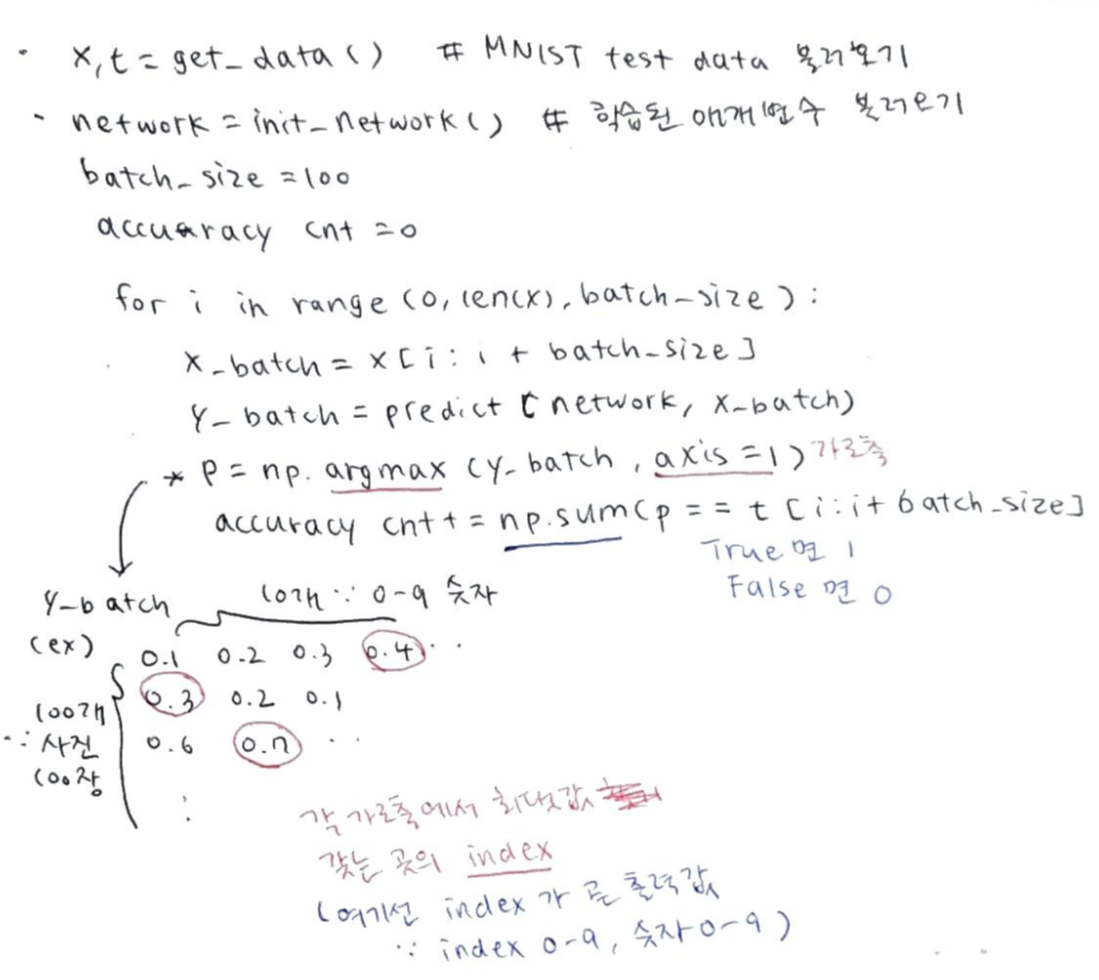 · x,t = get_data() # MNIST test data 불러오기
· network = init_network() # 학습된 매개변수 불러오기
batch_size = 100
accuaracy cnt = 0
for i in range (0, len(x), batch_size):
x_batch = x[i: i + batch_size]
Y_batch = predict (network, x_batch)
* P = np. argmax (y_batch, axis = 1) 가로축
accuracy cnt + = np.sum(p == t [i:i+ batch_size]
True면 1
False 면 0
Y_batch 10개 ∵ 0-9 숫자
(ex) 0.1 0.2 0.3 0.4 ··
0.3 0.2 0.1
100개
∵ 사진 0.6 0.7 ··
100장
⋮
각 가로축에서 최댓값
갖는 곳의 index
(여기선 index가 곧 출력값
∵ index 0-9, 숫자 0-9)